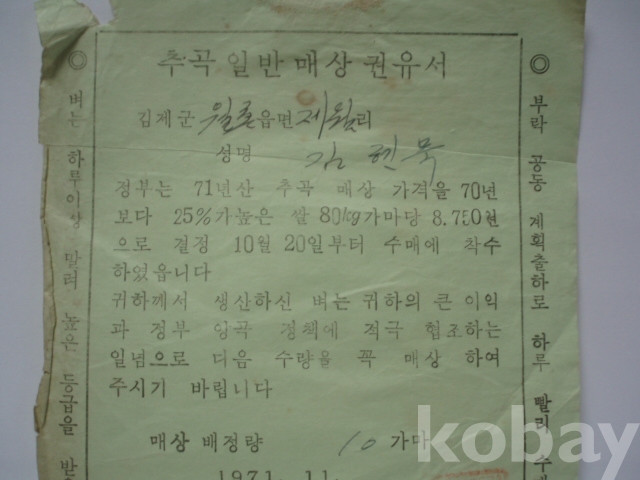 추곡 일반 매상 권유서
김제군 월촌읍면 제월리
성명 김현묵
정부는 71년산 추곡 매상 가격을 70년
보다 25%가높은 쌀 80kg가마당 8.750원
으로 결정 10월 20일부터 수매에 착수
하였읍니다
귀하께서 생산하신 벼는 귀하의 큰 이익
과 정부 양곡 정책에 적극 협조하는
일념으로 다음 수량을 꼭 매상 하여
주시기 바랍니다
매상 배정량 10 가마
1971. 11.
◎ 벼는 하루이상 말려 높은 등급을 받
◎ 부락 공동 계획출하로 하루 빨리 수매
kobay